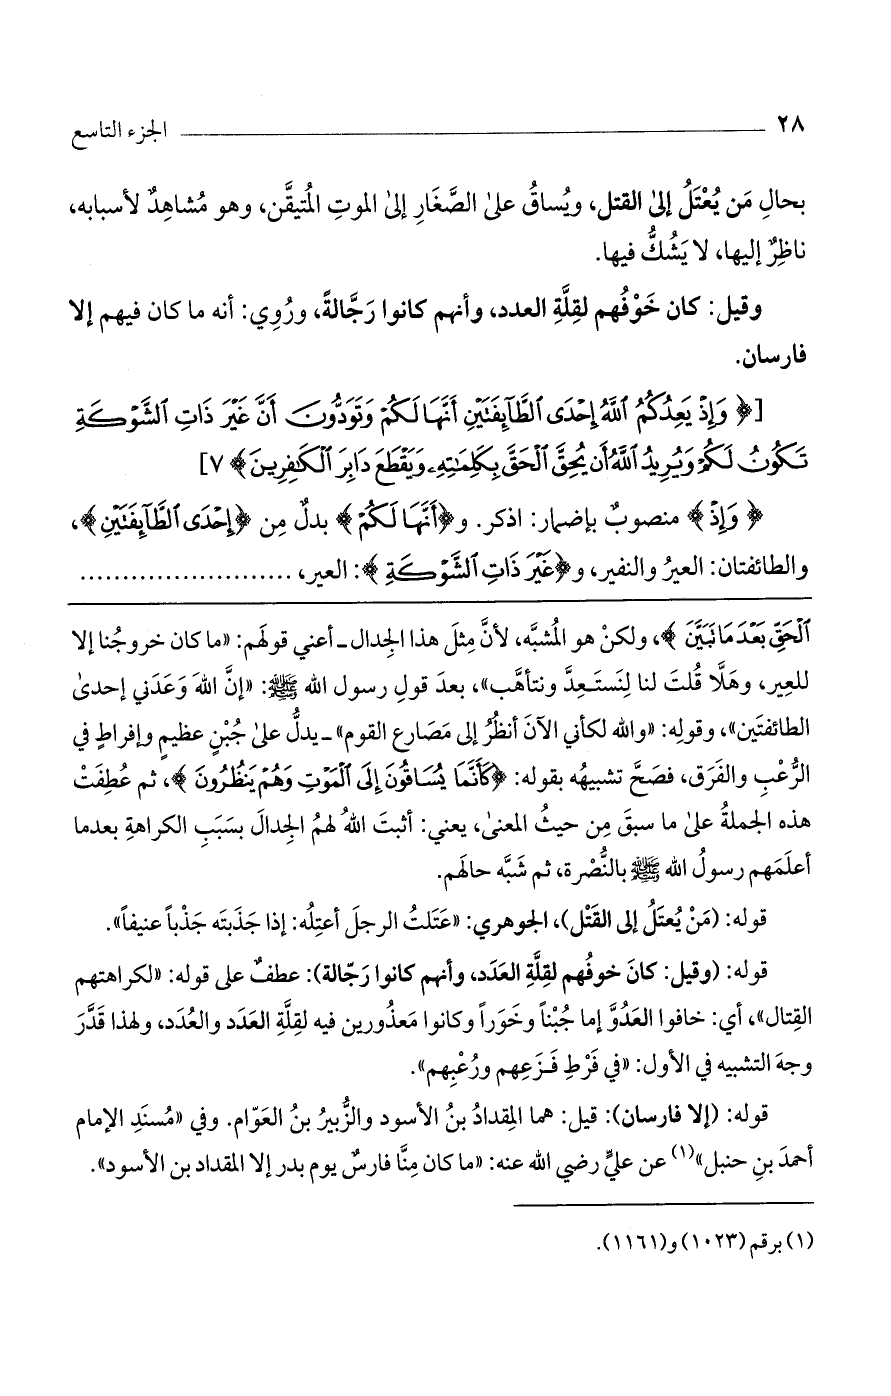 ٢٨ الجزء التاسع
بحالِ مَن يُعْتَلُ إلىٰ القتل، ويُساقُ علىٰ الصَّغَارِ إلىٰ الموتِ المُتيقَّن، وهو مُشاهِدٌ لأسبابه،
ناظِرٌ إليها، لا يَشُكُّ فيها.
وقيل: كان خَوْفُهم لقِلَّةِ العدد، وأنهم كانوا رَجَّالةً، ورُوِي: أنه ما كان فيهم إلا
فارسان.
[﴿ وَإِذْ يَعِدُكُمُ ٱللَّهُ إِحْدَى ٱلطَّآئِفَتَيْنِ أَنَّهَا لَكُمْ وَتَوَدُّونَ أَنَّ غَيْرَ ذَاتِ ٱلشَّوْكَةِ
تَكُونُ لَكُمْ وَيُرِيدُ ٱللَّهُ أَن يُحِقَّ ٱلْحَقَّ بِكَلِمَٰتِهِۦ وَيَقْطَعَ دَابِرَ ٱلْكَٰفِرِينَ﴾ ٧]
﴿ وَإِذْ﴾ منصوبٌ بإضمار: اذكر. و﴿أَنَّهَا لَكُمْ﴾ بدلٌ مِن ﴿إِحْدَى ٱلطَّآئِفَتَيْنِ﴾،
والطائفتان: العيرُ والنفير، و﴿غَيْرَ ذَاتِ ٱلشَّوْكَةِ﴾: العير، .........................
ٱلْحَقِّ بَعْدَ مَا تَبَيَّنَ ﴾، ولكنْ هو المُشبَّه، لأنَّ مِثلَ هذا الجِدال ـ أعني قولَهم: «ما كان خروجُنا إلا
للعِير، وهَلَّا قُلتَ لنا لِنَستَعِدَّ ونتأهَّب»، بعدَ قولِ رسول الله ﷺ: «إنَّ اللهَ وَعَدَني إحدىٰ
الطائفتَين»، وقولِه: «والله لكأني الآنَ أنظُرُ إلى مَصَارع القوم» ـ يدلُّ علىٰ جُبْنٍ عظيمٍ وإفراطٍ في
الرُّعْبِ والفَرَق، فصَحَّ تشبيهُه بقوله: ﴿كَأَنَّمَا يُسَاقُونَ إِلَى ٱلْمَوْتِ وَهُمْ يَنظُرُونَ ﴾، ثم عُطِفَتْ
هذه الجملةُ علىٰ ما سبقَ مِن حيثُ المعنىٰ، يعني: أثبتَ اللهُ لهمُ الجِدالَ بسَبَبِ الكراهةِ بعدما
أعلَمَهم رسولُ الله ﷺ بالنُّصْرة، ثم شَبَّه حالَهم.
قوله: (مَنْ يُعتَلُ إلى القَتْل)، الجوهري: «عَتَلتُ الرجلَ أعتِلُه: إذا جَذَبتَه جَذْباً عنيفاً».
قوله: (وقيل: كانَ خوفُهم لقِلَّةِ العَدَد، وأنهم كانوا رَجّالة): عطفٌ على قوله: «لكراهتهم
القِتال»، أي: خافوا العَدُوَّ إما جُبْناً وخَوَراً وكانوا مَعذُورين فيه لقِلَّةِ العَدَد والعُدَد، ولهذا قَدَّرَ
وجهَ التشبيه في الأول: «في فَرْطِ فَزَعِهم ورُعْبِهم».
قوله: (إلا فارسان): قيل: هما المِقدادُ بنُ الأسود والزُّبيرُ بنُ العَوّام. وفي «مُسنَدِ الإمام
أحمدَ بنِ حنبل»(١) عن عليٍّ رضي الله عنه: «ما كان مِنَّا فارسٌ يوم بدر إلا المقداد بن الأسود».
(١) برقم (١٠٢٣) و(١١٦١).